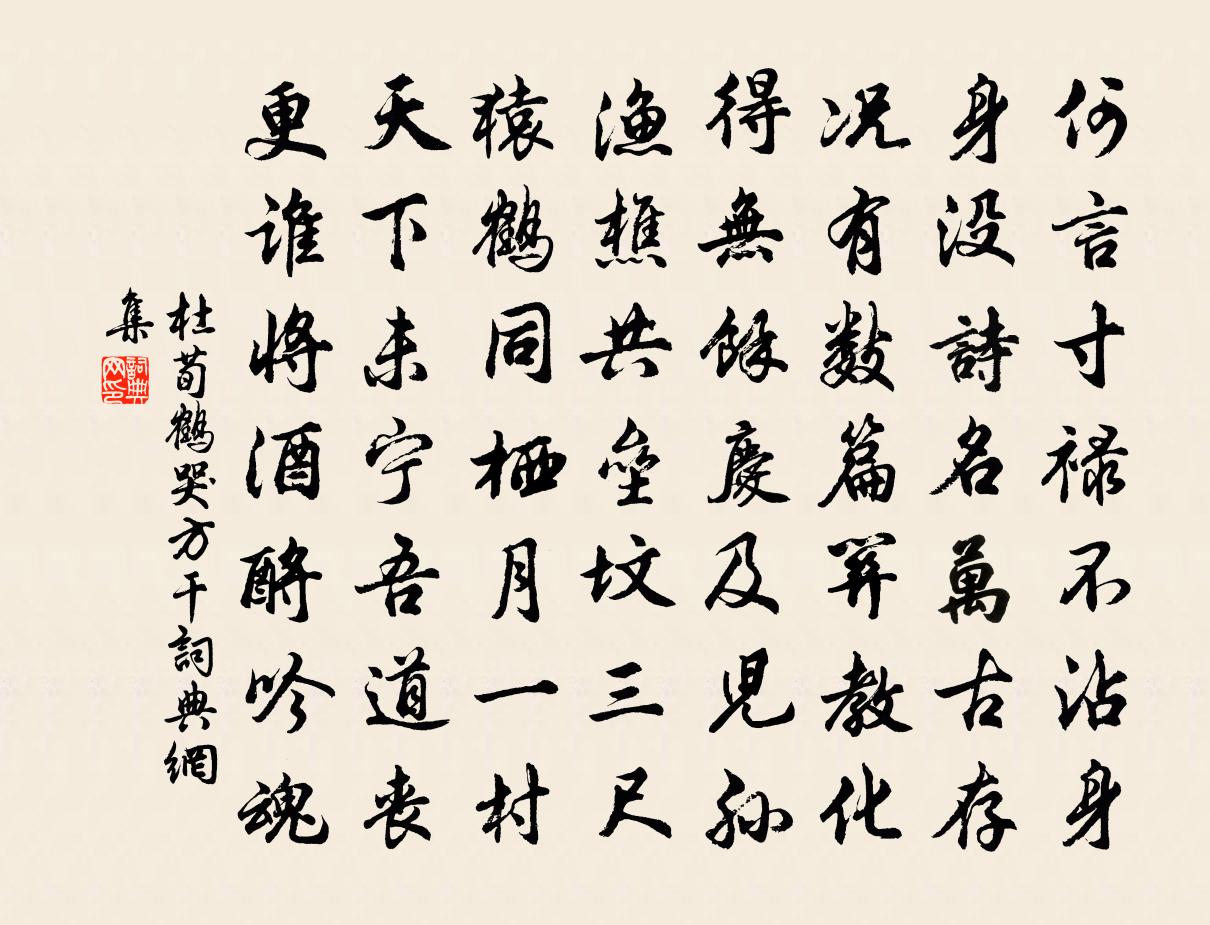 何言寸禄不沾身
身没詩名萬古存
况有數篇關教化
得無餘慶及兒孫
漁樵共壘坟三尺
猿鶴同栖月一村
天下未宁吾道丧
更谁將酒酹吟魂
杜荀鶴哭方干詞典網
集
詞典
网印